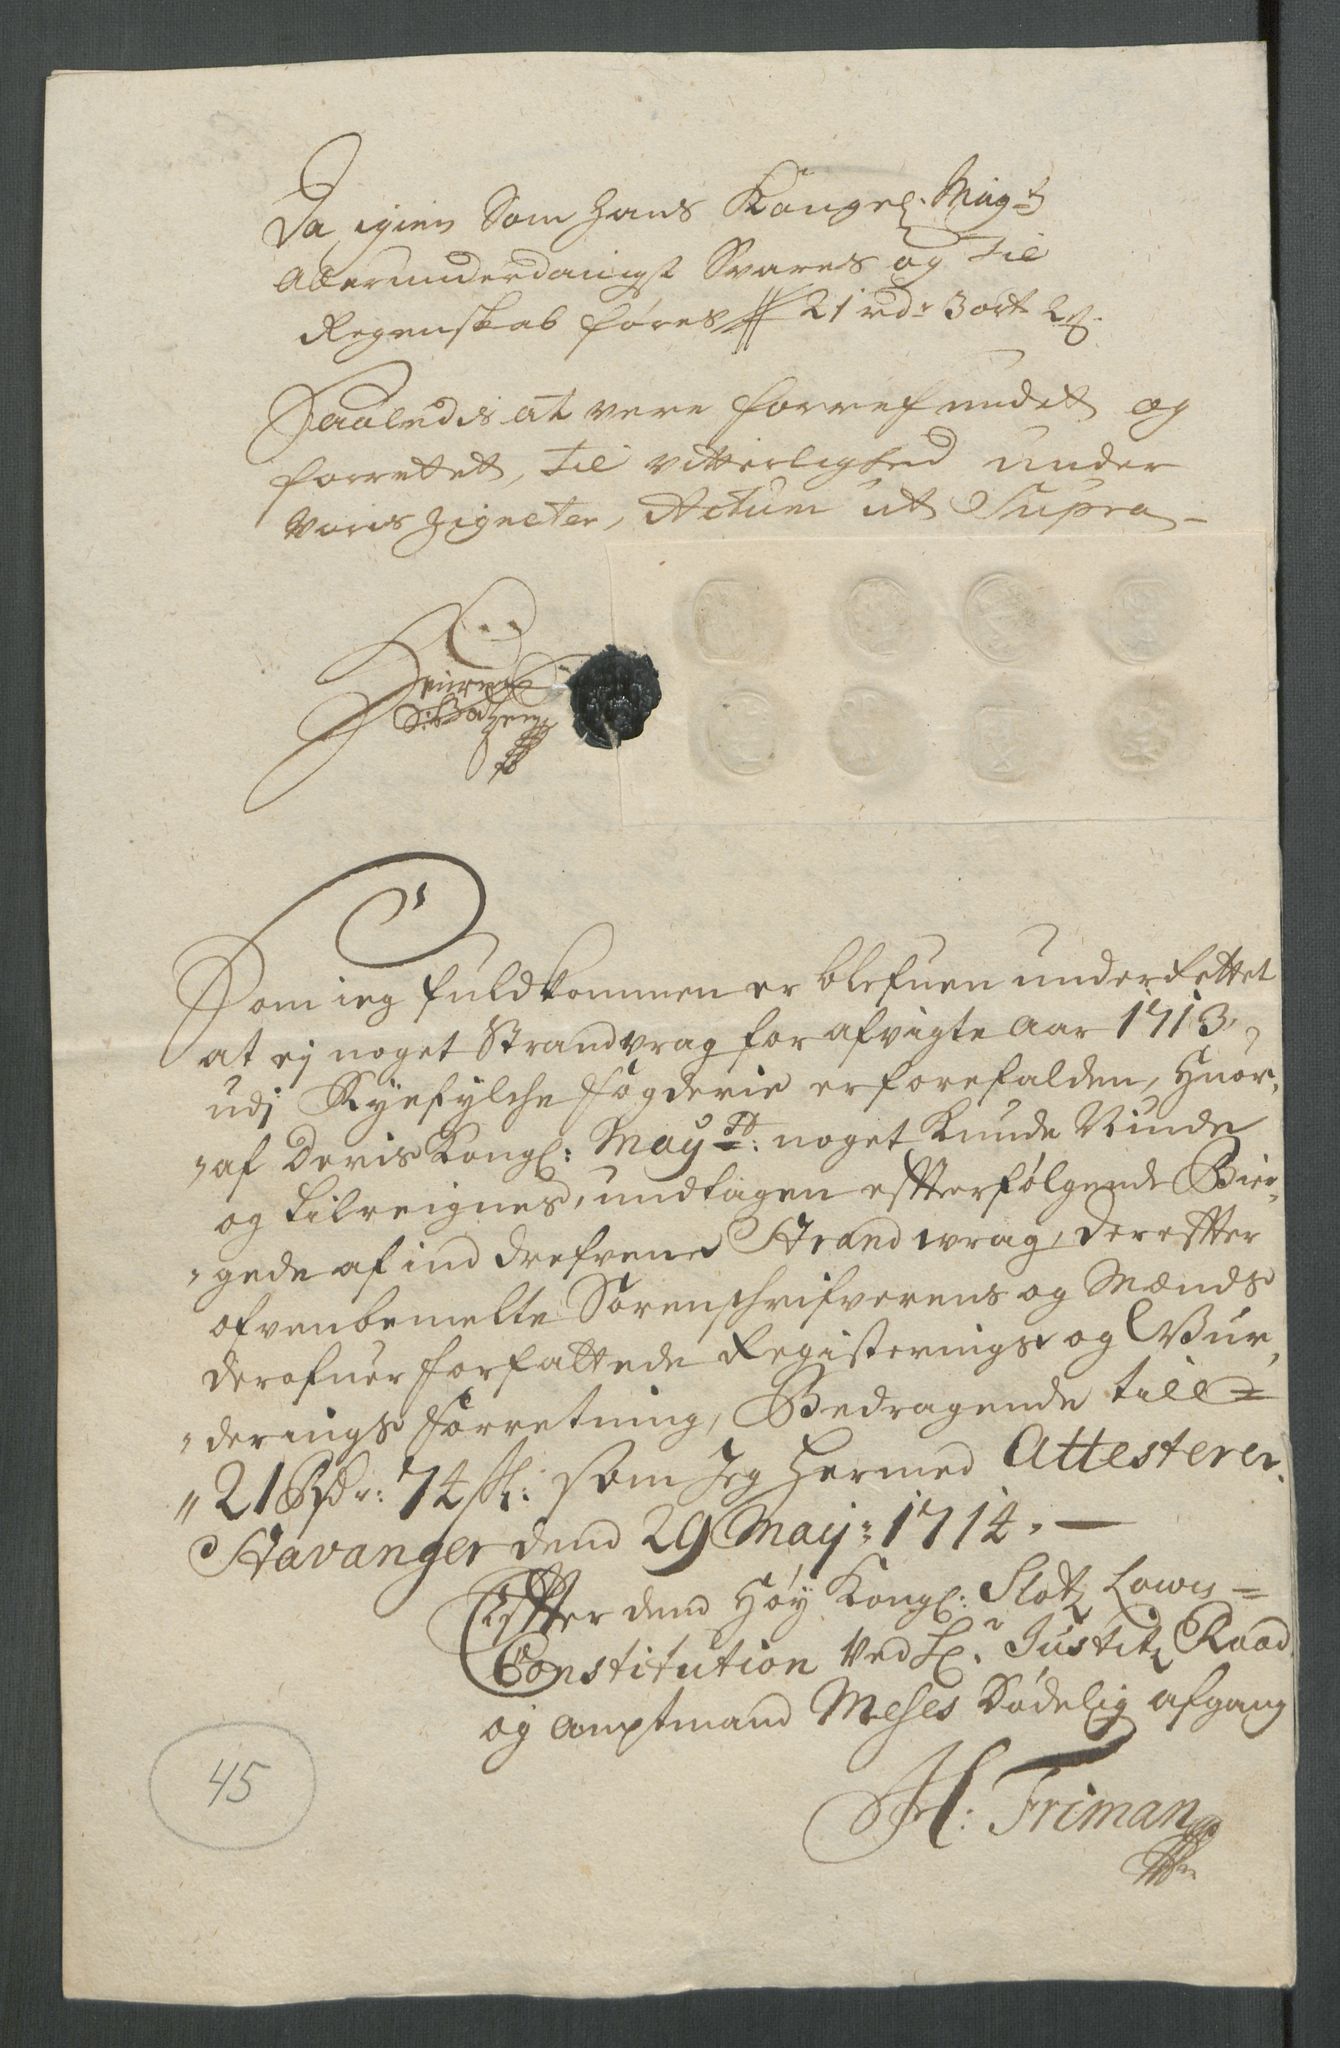 Da igien Som hans Kongel. Mayts
Allerunderdanigst Svares og til
Regenskab føres 21 rdr 3 ort 2 s.
Saaledis at vere forrefundet og
forrettet, til vitterlighed under
voris zigneter, Actum ut Supra
Som ieg fuldkommen er blefuen underrettet
at ej noget Strandvrag for afvigte Aar 1713,
udj Ryefylche fogderie er forefalden, Huor,
"af Deris Kongl: Mayst: noget kunde Vinde
og tilreignes, undtagen effterfølgende Bier,
"gede af ind drefvene Strand wrag, dereffter
ofvenbemelte Sorenschrifverens og Mænds
derofuer forfattede Registerings og Vur,
"derings forretning, Bedragende till=
"21 Rdr: 74 s: som Jeg Hermed Attesterer.
Stavanger dend 29 Maij: 1714. —
Effter dend Høy Kongl: Slotz Lowens=
Constitution Ved Justitz Raad
og amptmand Meses Dødelig afgang
H: Friman
45